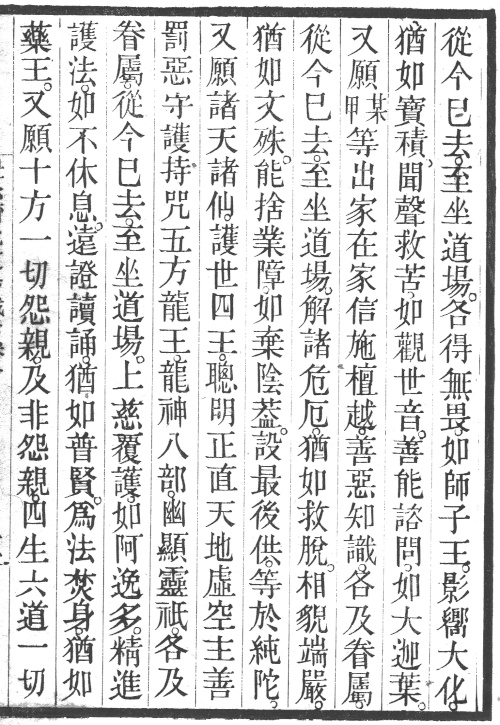 從今已去。至坐道場。各得無畏。如師子王。影嚮大化。
猶如寶積。聞聲救苦。如觀世音。善能諮問。如大迦葉。
又願某甲等出家在家信施檀越。善惡知識。各及眷屬。
從今已去。至坐道場。解諸危厄。猶如救脫。相貌端嚴。
猶如文殊。能捨業障。如棄陰葢。設最後供。等於純陀。
又願諸天諸仙。護世四王。聰明正直天地虛空主善
罰惡守護持咒五方龍王。龍神八部。幽顯靈祇。各及
眷屬。從今已去。至坐道場。上慈覆護。如阿逸多。精進
護法。如不休息。遠證讀誦。猶如普賢。爲法焚身。猶如
藥王。又願十方一切怨親。及非怨親。四生六道一切